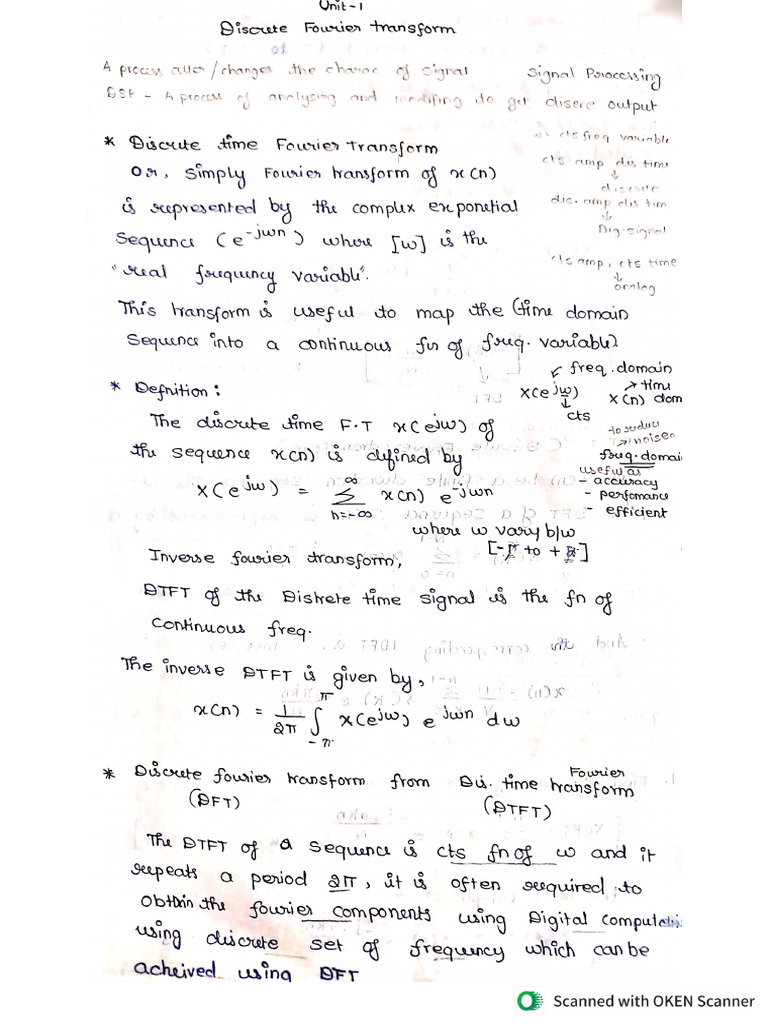 Unit-1
Discrete Fourier transform
A process alter/changes the charac of signal
Signal Processing
DSP - A process of analysing and modifing to get disere output
cts freq variable
* Discrete time Fourier Transform
cts amp dis time
↓
discrete
Or, simply Fourier transform of x(n)
dis. amp dis tim
↓
Dig-signal
is represented by the complex exponetial
sequence (e^-jwn) where [w] is the
cts amp, cts time
↓
analog
"real frequency variable".
This transform is useful to map the (time domain
sequence into a continuous fn of freq. variable)
freq. domain
* Defnition:
X(e^jw)
↓
cts
→ time
x(n) dom
The discrete time F.T x(e^jw) of
to reduce
→ noises
the sequence x(n) is defined by
freq. domai
useful as
- accuracy
- perfomance
- efficient
X(e^jw) = ∞ Σ n=-∞ x(n) e^-jwn
where w vary b/w
[-π to +π]
Inverse fourier transform,
DTFT of the Diskrete time signal is the fn of
continuous freq.
The inverse DTFT is given by,
x(n) = 1/2π ∫ π -π x(e^jw) e^jwn dw
* Discrete fourier transform from Dis. time Fourier transform
(DFT) (DTFT)
The DTFT of a sequence is cts fn of w and it
repeats a period 2π, it is often required to
obtain the fourier components using Digital computati
using discrete set of frequency which can be
acheived using DFT
Scanned with OKEN Scanner